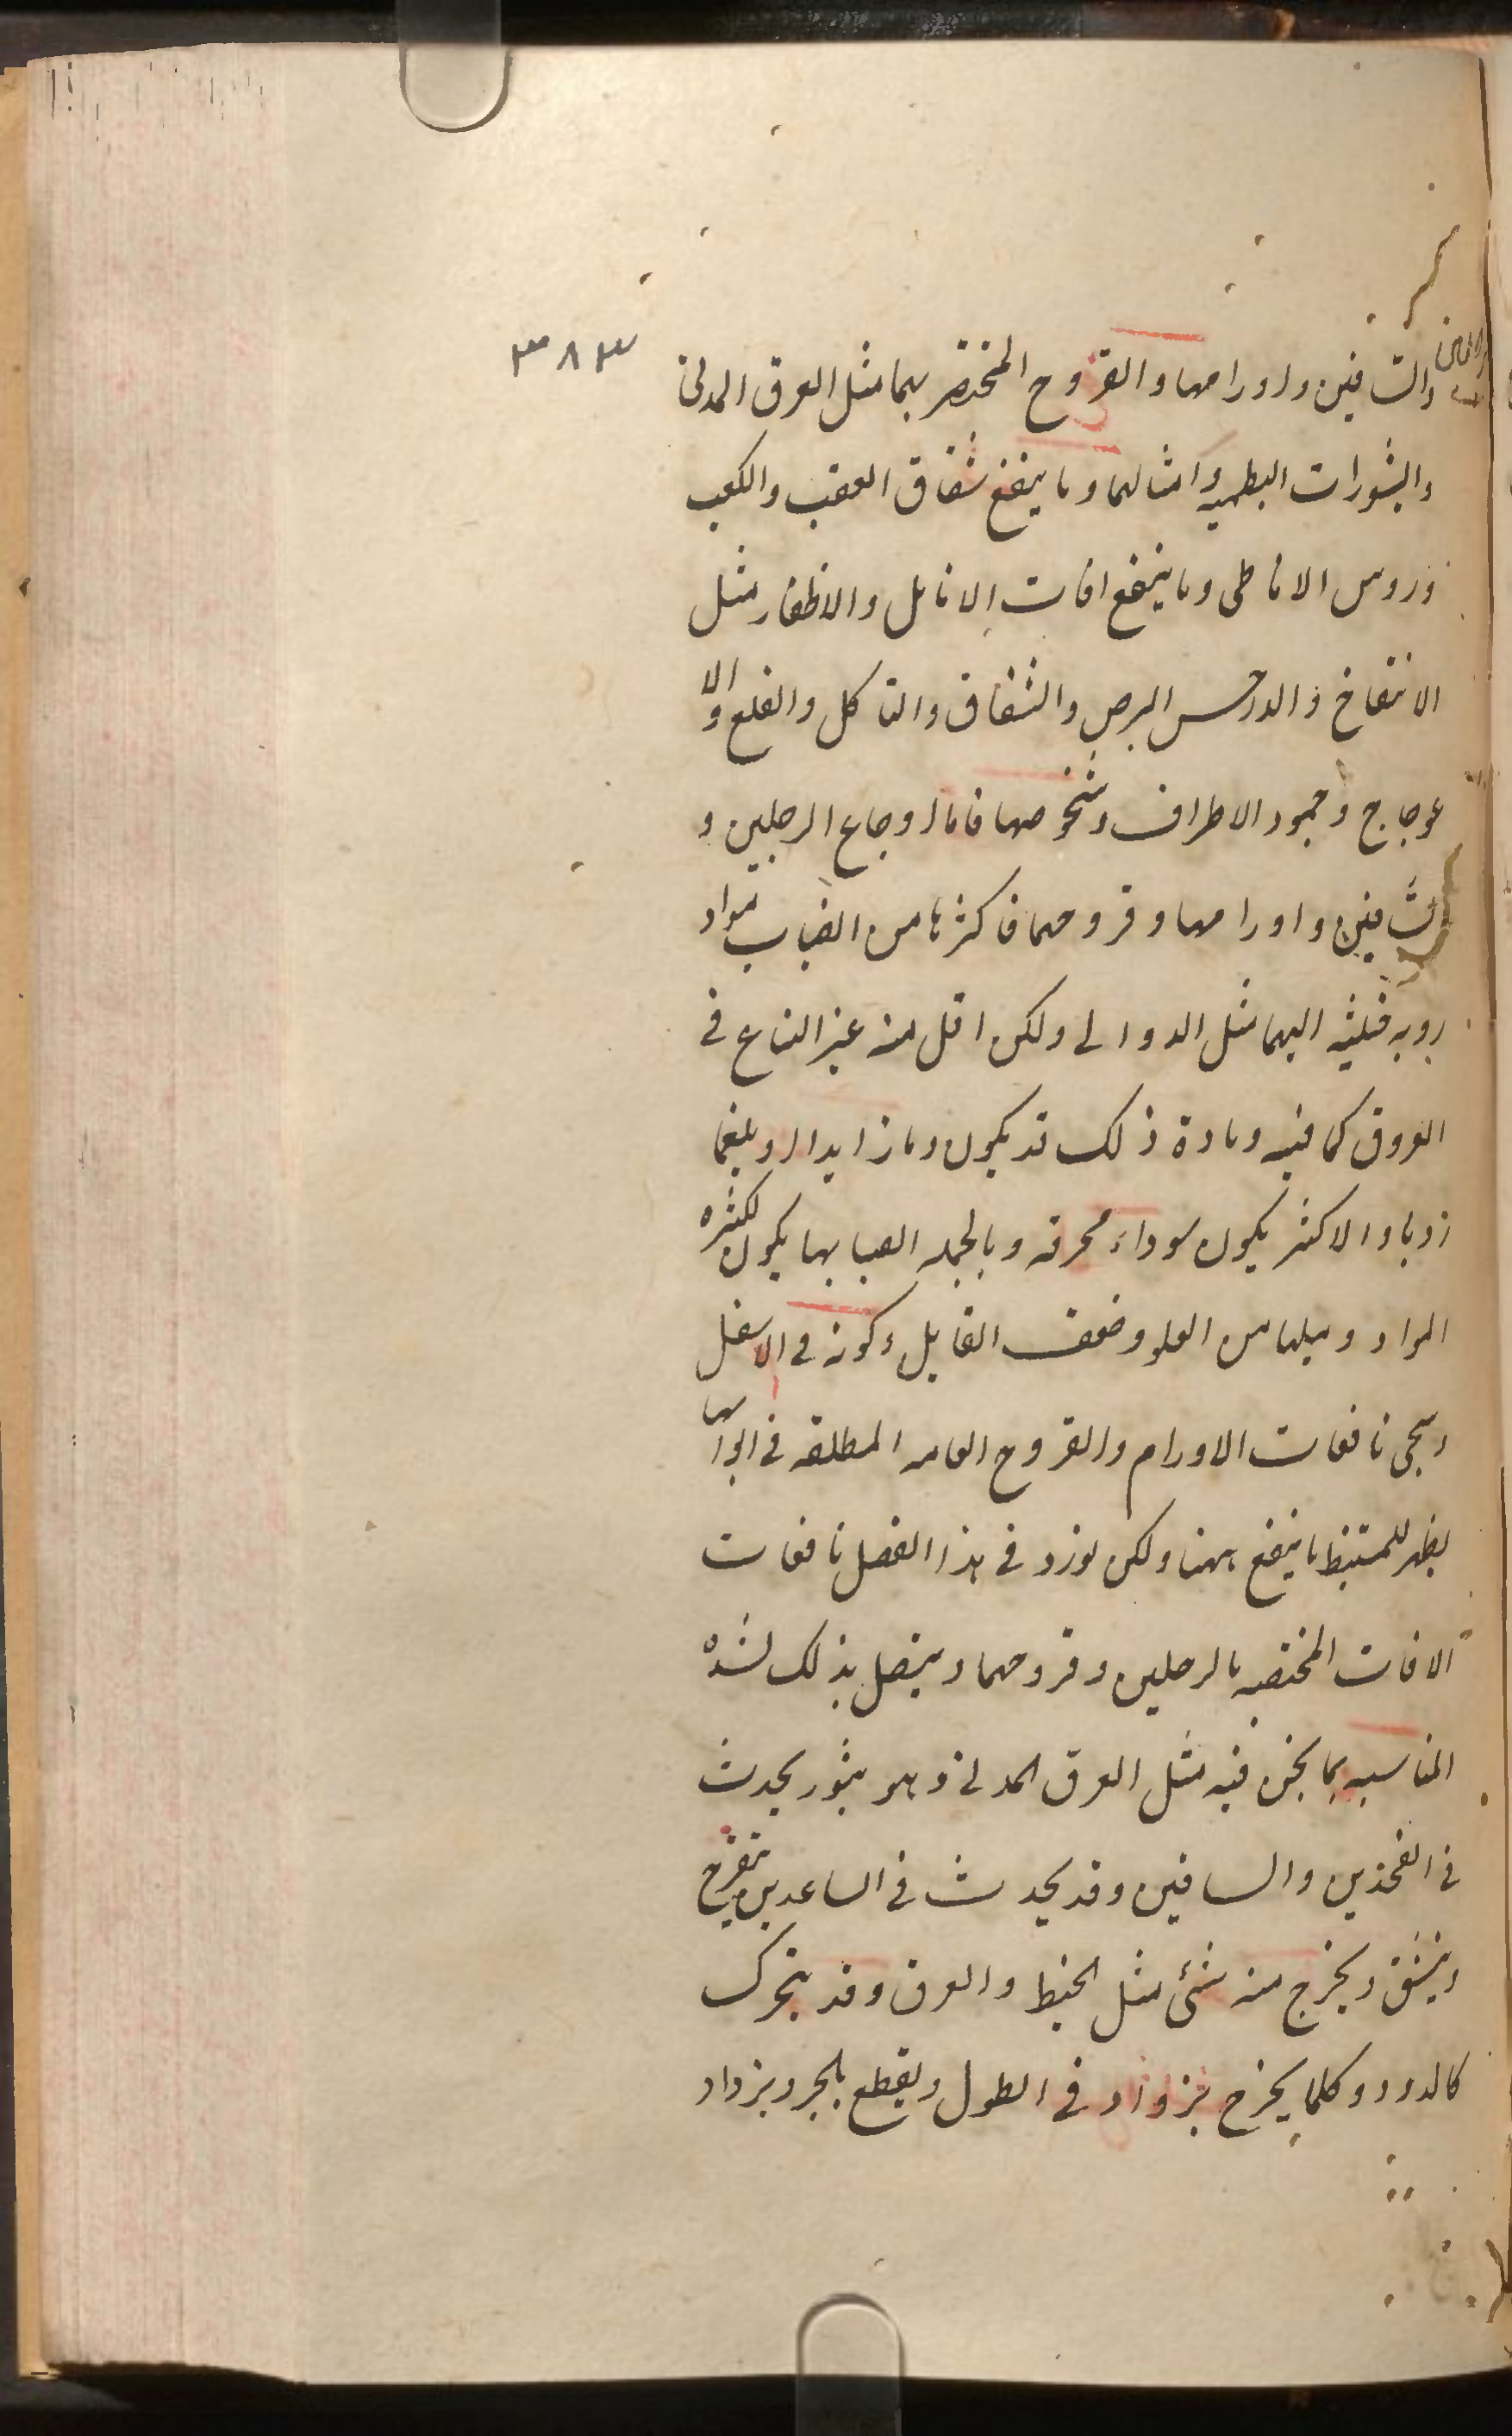 ٣٨٣
والساقين واورامها والقروح المختصر بهما مثل العرق المدنى
والبثورات البطميه وامثالهما وما ينفع شقاق العقب والكعب
وروس الاناطى وما ينفع افات الانامل والاظفار مثل
الانتفاخ والدحس البرص والشقاق والتاكل والقلع والا
عوجاج وجمود الاطراف وشخوصها فاما اوجاع الرجلين و
الساقين واورامها وقروحهما فاكثرها من انصباب مواد
رديه غليظه اليهما مثل الدوالى ولكن اقل منه غير الساع فى
العروق كما فيه وماده ذلك قد يكون دما زايدا او بلغما
رديا والاكثر يكون سوداء محرقه وبالجمله انصبابها يكون لكثره
المواد وميلها من العلو وضعف القابل وكونه فى الاسفل
وسيجى نافعات الاورام والقروح العامه المطلقه فى ابوابها
يظهر للمستنبط ما ينفع ههنا ولكن نورد فى هذا الفصل نافعات
الافات المختصه بالرجلين وقروحهما ويتصل بذلك لشده
المناسبه بما نحن فيه مثل العرق المدنى وهو بثور يحدث
فى الفخذين والساقين وقد يحدث فى الساعدين يتقرح
وينشق ويخرج منه شئ مثل الخيط والعرق وقد يتحرك
كالدود وكلما يخرج يزداد فى الطول ويقطع بالجر ويزداد